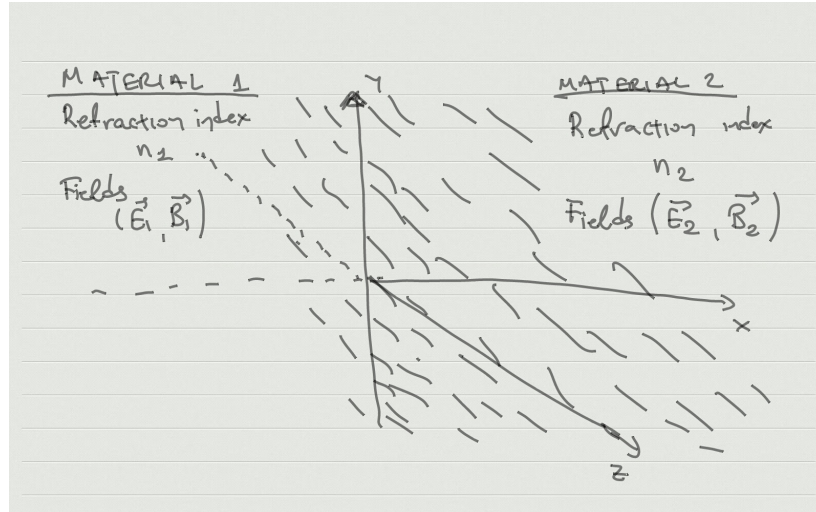 MATERIAL 1
Refraction index
n₁
Fields
(E⃗₁, B⃗₁)
Y
MATERIAL 2
Refraction index
n₂
Fields (E⃗₂, B⃗₂)
X
Z